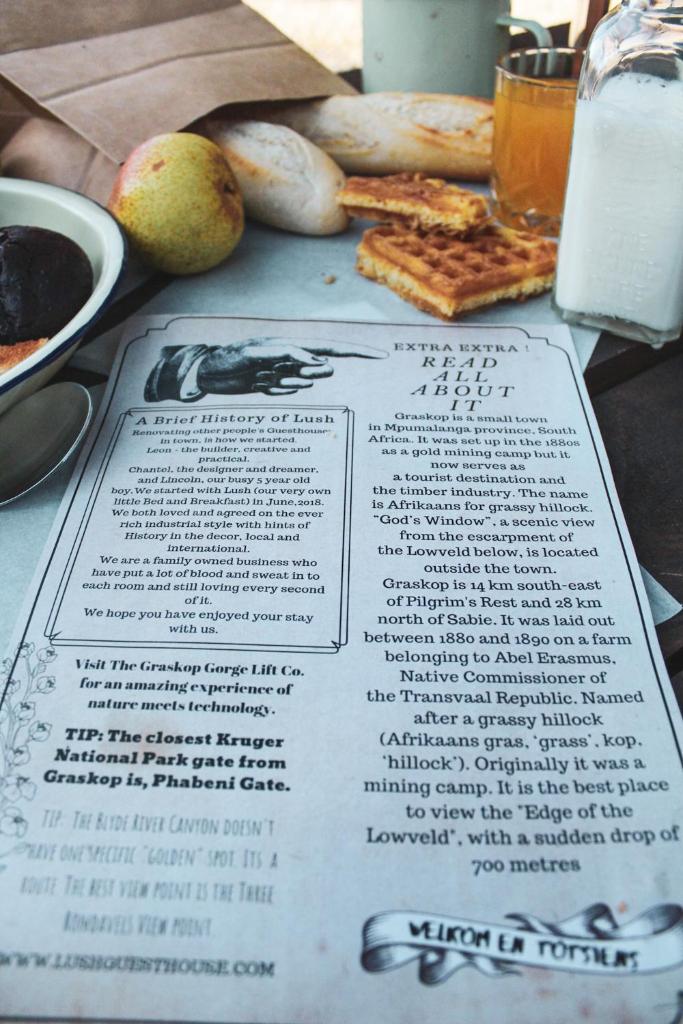 A Brief History of Lush
Renovating other people's Guesthouse
in town, is how we started.
Leon - the builder, creative and
practical.
Chantel, the designer and dreamer,
and Lincoln, our busy 5 year old
boy. We started with Lush (our very own
little Bed and Breakfast) in June,2018.
We both loved and agreed on the ever
rich industrial style with hints of
History in the decor, local and
international.
We are a family owned business who
have put a lot of blood and sweat in to
each room and still loving every second
of it.
We hope you have enjoyed your stay
with us.
Visit The Graskop Gorge Lift Co.
for an amazing experience of
nature meets technology.
TIP: The closest Kruger
National Park gate from
Graskop is, Phabeni Gate.
TIP: The Blyde River Canyon doesn't
have one specific "golden" spot. Its a
route. The best view point is the Three
Rondavels View point.
WWW.LUSHGUESTHOUSE.COM
EXTRA EXTRA !
READ
ALL
ABOUT
IT
Graskop is a small town
in Mpumalanga province, South
Africa. It was set up in the 1880s
as a gold mining camp but it
now serves as
a tourist destination and
the timber industry. The name
is Afrikaans for grassy hillock.
"God's Window", a scenic view
from the escarpment of
the Lowveld below, is located
outside the town.
Graskop is 14 km south-east
of Pilgrim's Rest and 28 km
north of Sabie. It was laid out
between 1880 and 1890 on a farm
belonging to Abel Erasmus,
Native Commissioner of
the Transvaal Republic. Named
after a grassy hillock
(Afrikaans gras, 'grass', kop,
'hillock'). Originally it was a
mining camp. It is the best place
to view the "Edge of the
Lowveld", with a sudden drop of
700 metres
WELKOM EN TOTSIENS